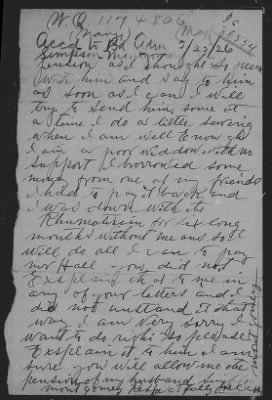 W.O. 1174806
(Mary)
Accd to Bd Adm 3/23/26
pension as I thought to
with him and say to him
as soon as I can I will
try to send him some at
a time I do a little sewing
when I am well Enough
I am a poor widdow with no
support I borrowed some
money from one of my friends
I had to pay it back and
I was down with the
Rhumatism for six long
months without means so I
will do all I can to pay
mr Hall you did not
Exsplain it to me in
any of your letters and I
did not nustand it that
way I am very sorry I
want to do right so please
Exsplain it to him I am
sure you will allow me the
pension of my husband
montgomey respectfully
mont gomey